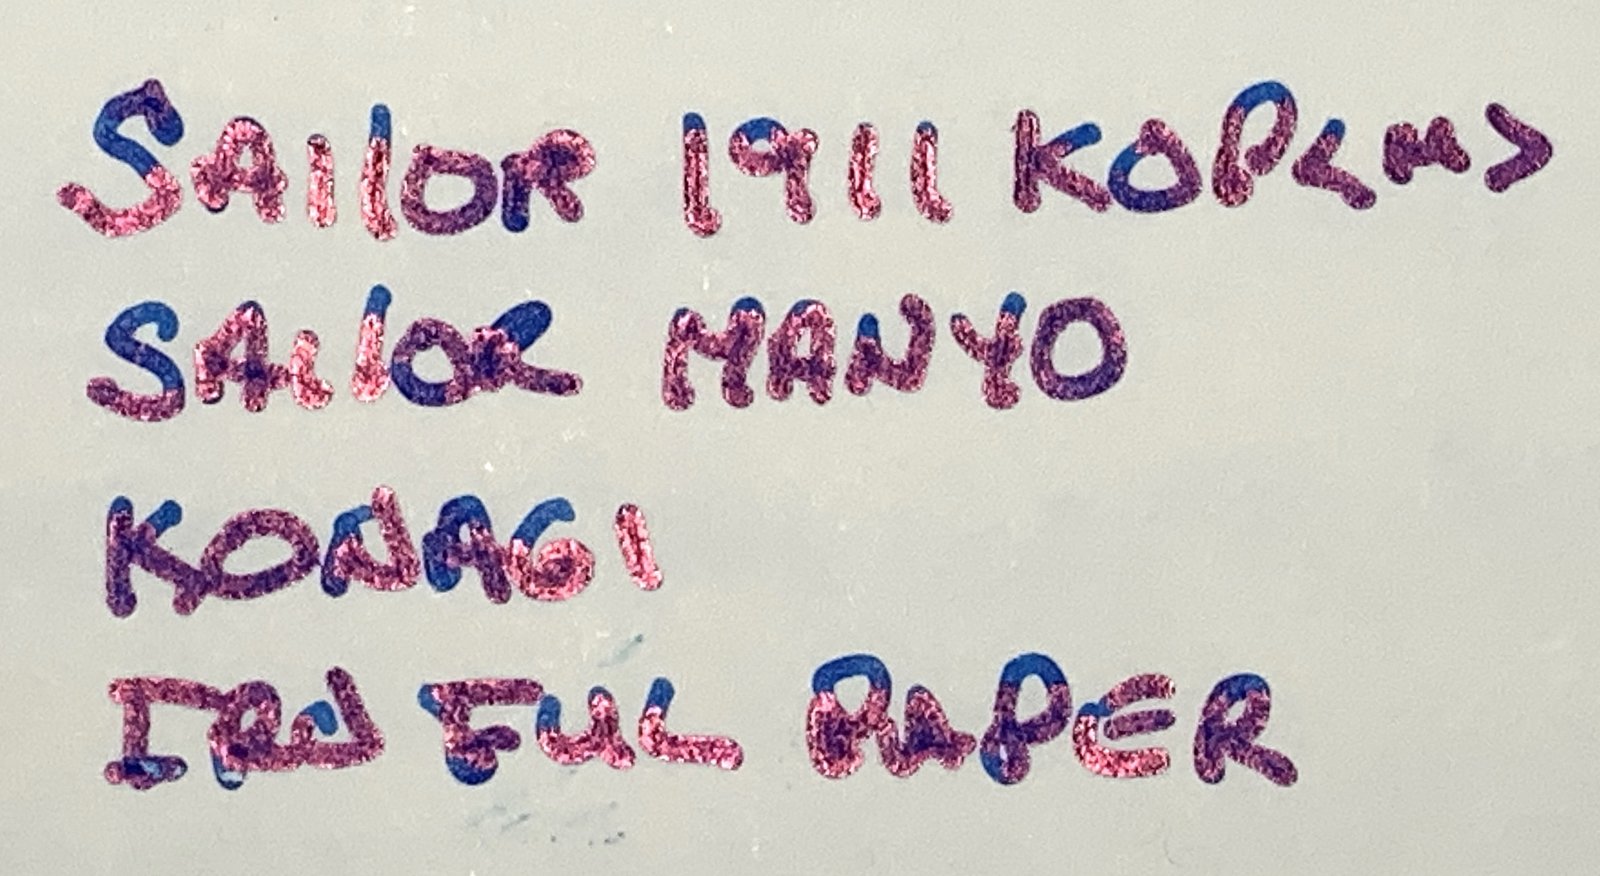 SAILOR 1911 KOP<M>
SAILOR MANYO
KONAGI
IROFUL PAPER